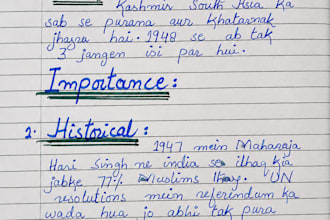 Kashmir South Asia ka
sab se purana aur khatarnak
jhagra hai. 1948 se ab tak
3 jangen isi par hui.
Importance:
2. Historical:
1947 mein Maharaja
Hari Singh ne india se ilhaq kia
jabke 77% Muslims thay. UN
resolutions mein referendum ka
wada hua jo abhi tak pura